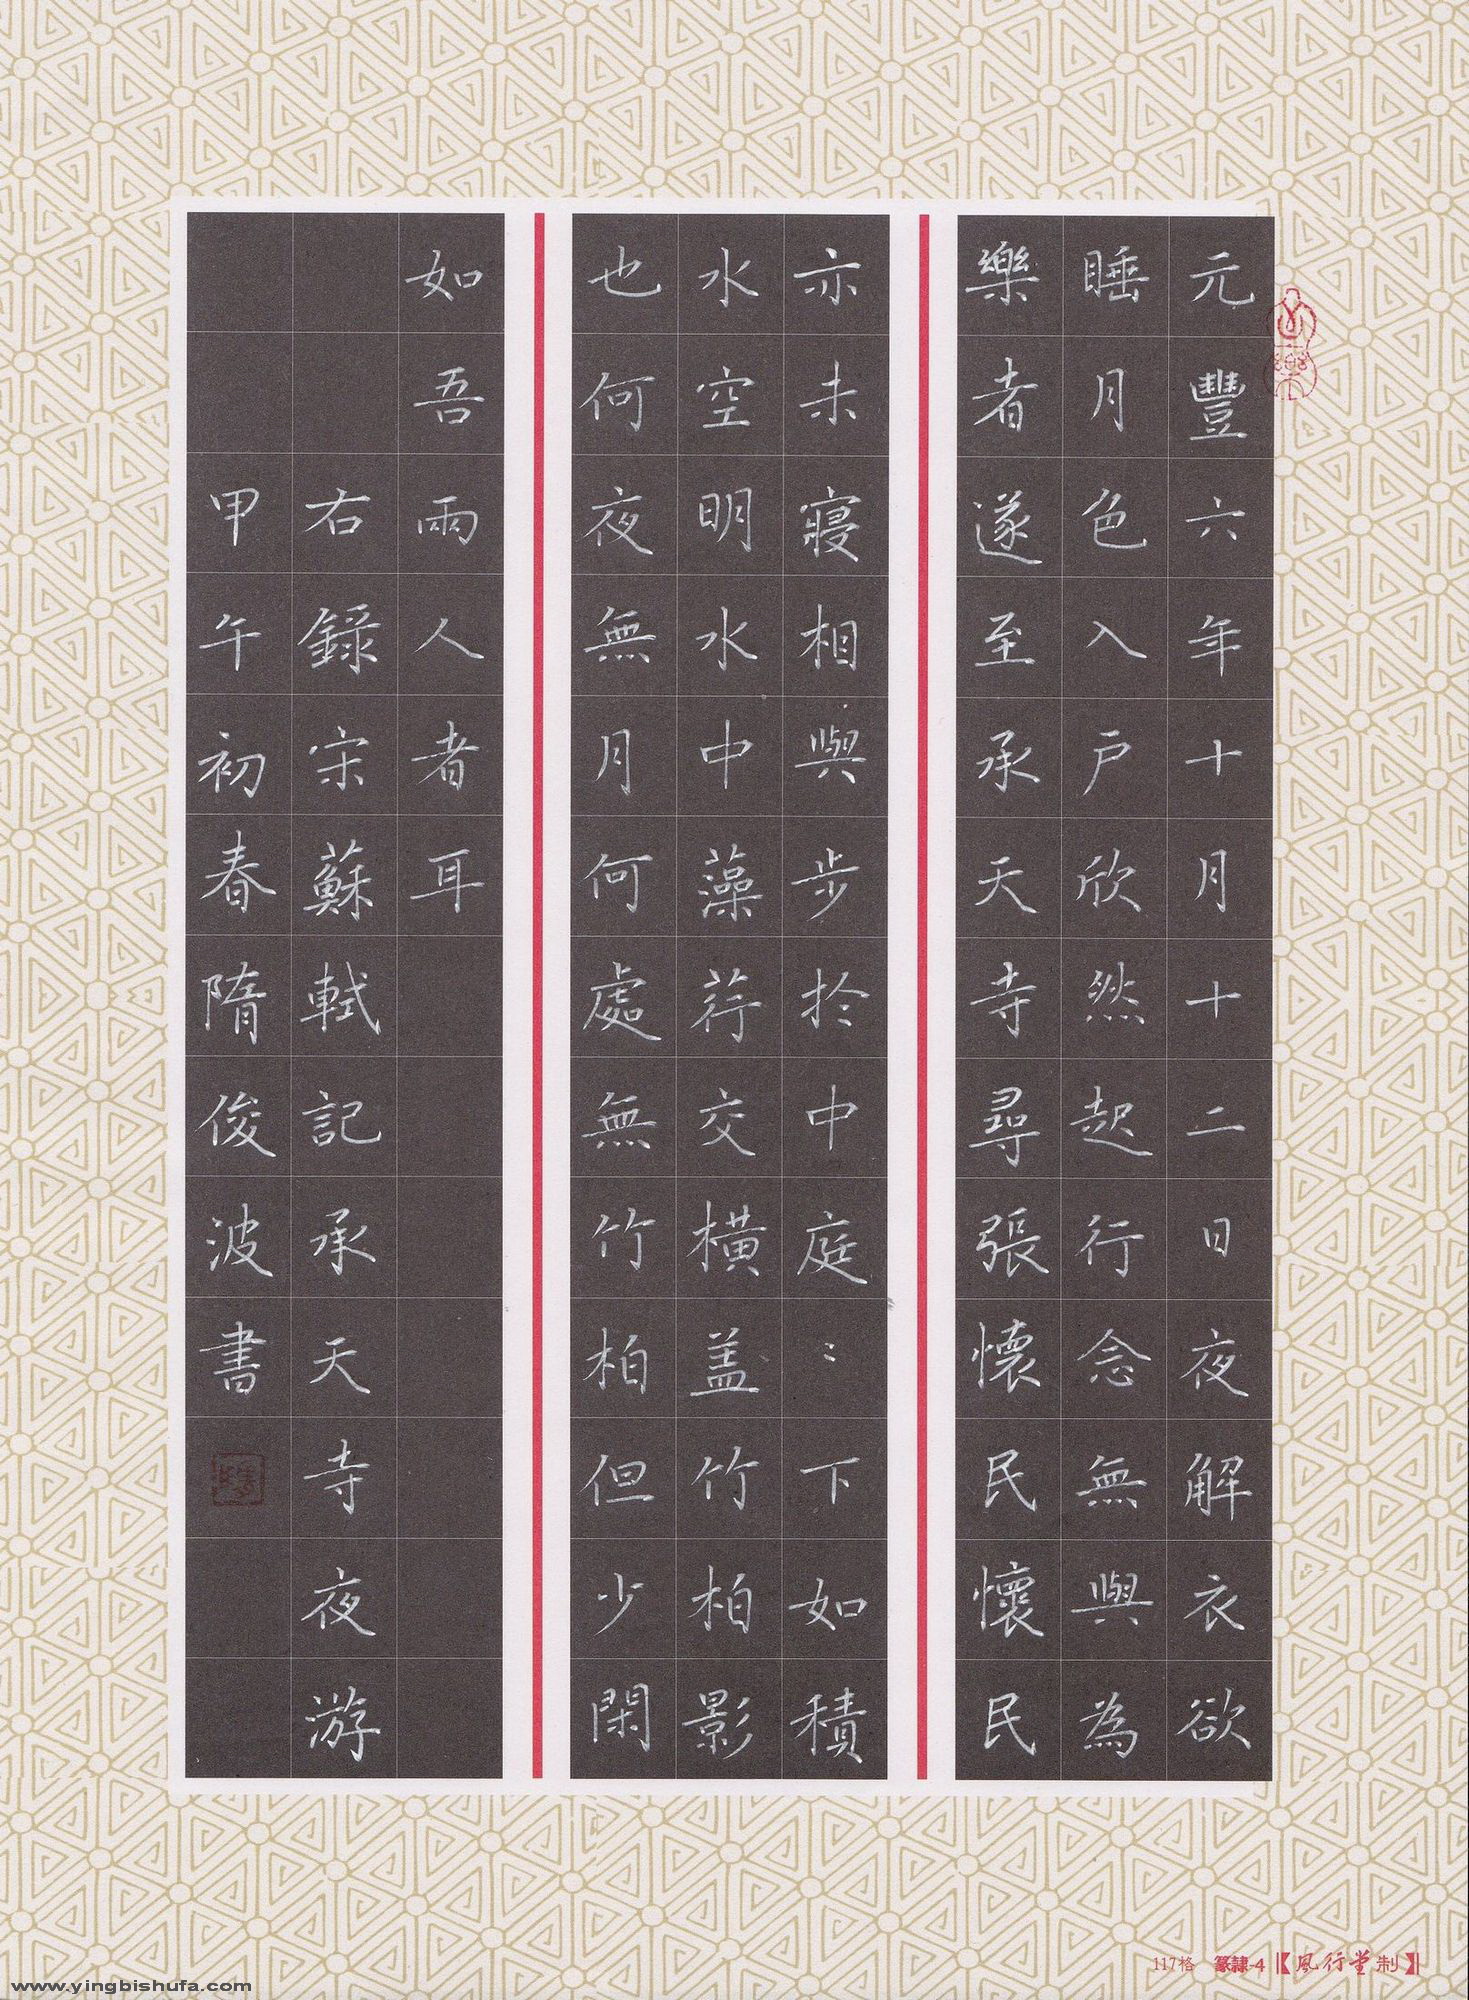 元豐六年十月十二日夜解衣欲
睡月色入戶欣然起行念無與為
樂者遂至承天寺尋張懷民懷民
亦未寢相與步於中庭〻下如積
水空明水中藻荇交橫盖竹柏影
也何夜無月何處無竹柏但少閑
如吾兩人者耳
右錄宋蘇軾記承天寺夜游
甲午初春隋俊波書
117格 篆隸-4【風行堂制】
www.yingbishufa.com